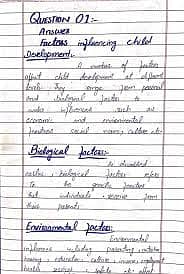 QUESTION 01:-
Answer
Factors influencing child
development.
A number of factors
affect child development at different
levels. They range from personal
and biological factors to
wider influences such as
economic and environmental
social norms, culture etc.
Biological factors:-
As described
earlier, biological factors refer
To be genetic factors
that individuals receive from
their parents.
Environmental factors:-
Environmental
influences including parenting,
education, culture, income,
health